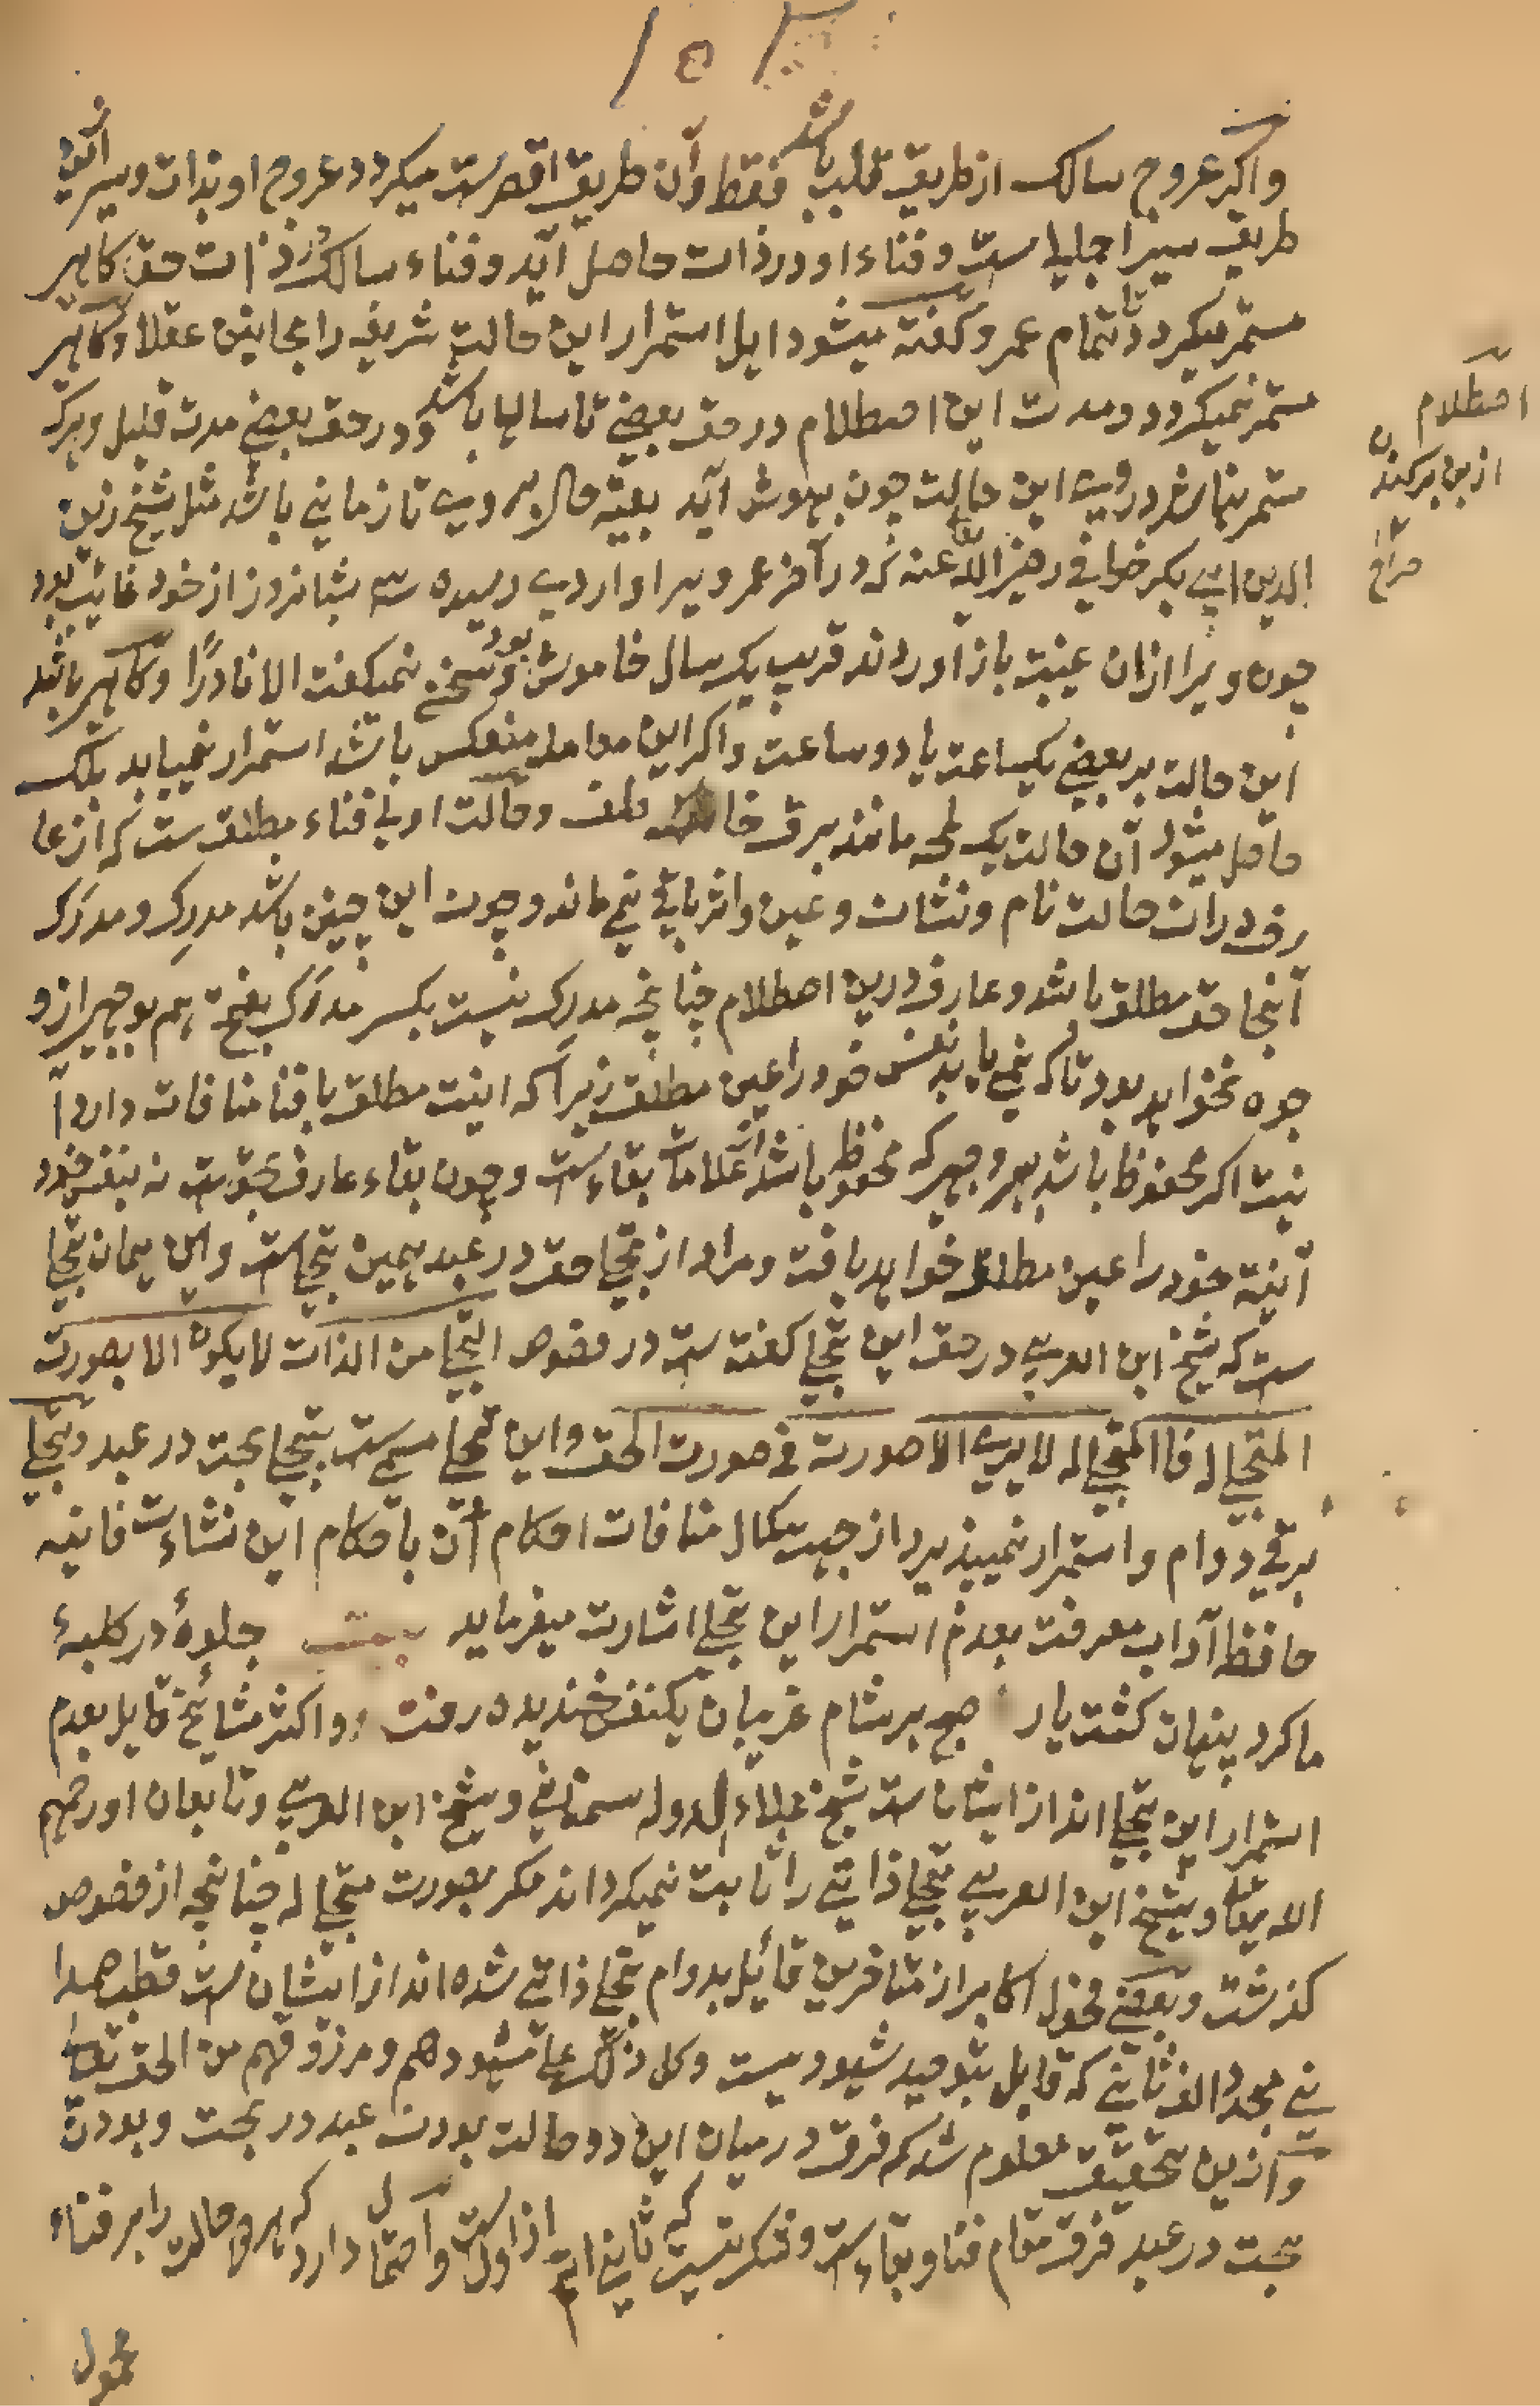 واکر عروج سالک از طریق قلب باشد فقط وآن طریق اقصرست میکردد عروج او بذات وسیر این
طریق سیر اجمالیاست وفناء او در ذات حاصل آید وفناء سالک در ذات حق کاهی
مستمر میکردد تا تمام عمر وکفته میشود اهل استمرار این حالت شریفه را مجانین عقلا وکاهی
مستمر نمیکردد ومدت این اصطلام در حق بعضی تا سالها باشد ودر حق بعضی مدت قلیل وهرکه
مستمر نباشد درویی این حالت چون بهوش آید بقیه حال بر ویی تا زمانی باشد مثل شیخ زین
الدین ابی بکر خوافی رضی الله عنه که در آخر عمر ویرا واردیی رسیده سه شبانروز از خود غائب بود
چون ویرا ازان غیبت باز اوردند قریب یک سال خاموش بود وسخن نمیکفت الا نادرًا وکاهی باشد
این حالت بر بعضی یکساعت یا دو ساعت واکر این معامله منعکس باشد استمرار نمییابد بلکه
حاصل میشود آن حالت یک لمحه مانند برق خاطف وحالت اولی فناء مطلق ست که از عا
رف دران حالت نام ونشان وعین واثر باقی نمی ماند وچون این چنین باشد مدرِک ومدرَک
آنجا حق مطلق باشد وعارف درین اصطلام چنانچه مدرک نیست بکسر مدرَک بفتح هم بوجهی از و
جوه نخواهد بود تا که نمی یابد نفس خود را عین مطلق زیرا که انیت مطلق با فنا منافات دارد ا
نیت اکر محفوظ باشد بهر وجهی که محفوظ باشد از علامات بقاءست وچون بقاء عارف بحق ست نه بنفس خود
آنیة خود را عین مطلق خواهد یافت ومراد از تجلی حق در عبد همین تجلیست واین همان تجلی
ست که شیخ ابن العربی در حق این تجلی کفته ست در فصوص التجلی من الذات لا یکون الا بصورت
المتجلی له فاالمتجلی له لا یری الا صورته فی صورت الحق واین تجلی مسمی ست بتجلی بحت در عبد وتجلی
برقی دوام واستمرار نمیپذیرد از جهت کمال منافات احکام آن با حکام این نشاءت فانیه
حافظ آداب معرفت بعدم استمرار این تجلی اشارت میفرماید بیت جلوهٔ در کلبهٔ
ما کرد پنهان کشت یار صبح بر شام غریبان یکنفس خندید ورفت واکثر مشائخ قایل بعدم
استمرار این تجلی اند از ایشانست شیخ علاء الدوله سمنانی وشیخ ابن العربی وتابعان او رحمهم
الله تعا وشیخ ابن العربی تجلی ذاتی را ثابت نمیکرداند مکر بصورت متجلی له چنانچه از فصوص
کذشت وبعضی فحول اکابر از متاخرین قائیل بدوام تجلی ذاتی شده اند از ایشان ست قطب صمدا
نی مجدد الف ثانی که قایل بتوحید شهودیست وکل ذلک علی مشهودهم ومرزوقهم من الحق تعا
وازین تحقیق معلوم شد که فرق درمیان این دو حالت بودن عبد در بحت وبودن
بحت در عبد فرق مقام فنا وبقاءست وشک نیست که ثانی اتم از اولست واحتمال دارد که هر دو حالت را بر فناء
محمول
اصطلام
از بن برکندن
صراح